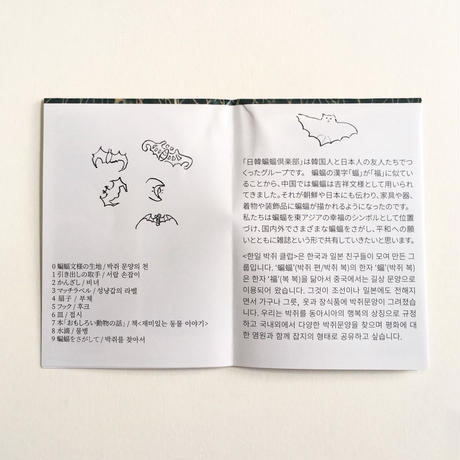 0 蝙蝠文様の生地 / 박쥐 문양의 천
1 引き出しの取手 / 서랍 손잡이
2 かんざし / 비녀
3 マッチラベル / 성냥갑의 라벨
4 扇子 / 부채
5 フック / 후크
6 皿 / 접시
7 本「おもしろい動物の話」 / 책<재미있는 동물 이야기>
8 水滴 / 물병
9 蝙蝠をさがして / 박쥐를 찾아서
「日韓蝙蝠倶楽部」は韓国人と日本人の友人たちでつ
くったグループです。 蝙蝠の漢字「蝠」が「福」に似てい
ることから、中国では蝙蝠は吉祥文様として用いられ
てきました。それが朝鮮や日本にも伝わり、家具や器、
着物や装飾品に蝙蝠が描かれるようになったのです。
私たちは蝙蝠を東アジアの幸福のシンボルとして位置
づけ、国内外でさまざまな蝙蝠をさがし、平和への願
いとともに雑誌という形で共有していきたいと思います。
<한일 박쥐 클럽>은 한국과 일본 친구들이 모여 만든 그
룹입니다. '蝙蝠'(박쥐 편/박쥐 복)의 한자 '蝠'(박쥐 복)
은 한자 '福'(복 복)을 닮아서 중국에서는 길상 문양으로
이용되어 왔습니다. 그것이 조선이나 일본에도 전해지
면서 가구나 그릇, 옷과 장식품에 박쥐문양이 그려졌습
니다. 우리는 박쥐를 동아시아의 행복의 상징으로 규정
하고 국내외에서 다양한 박쥐문양을 찾으며 평화에 대
한 염원과 함께 잡지의 형태로 공유하고 싶습니다.